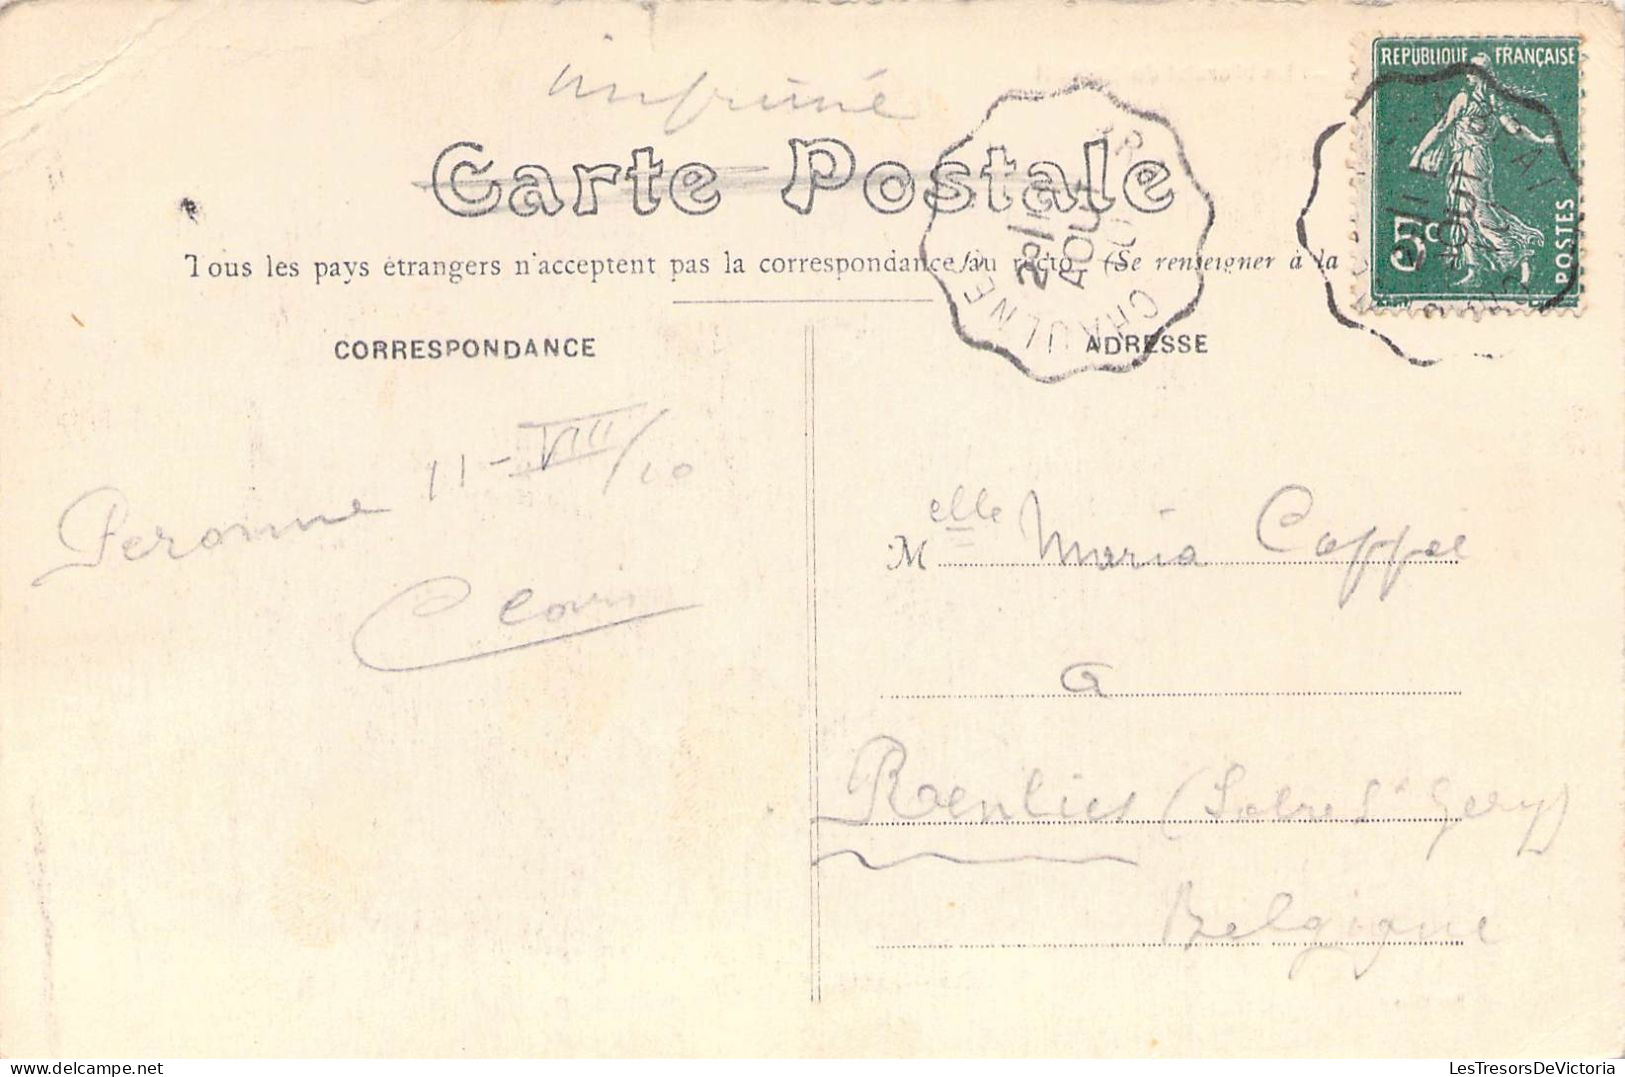 imprimé
Carte Postale
Tous les pays étrangers n'acceptent pas la correspondance au recto (Se renseigner à la
RÉPUBLIQUE FRANÇAISE
5c
POSTES
CHAULNE
11
AOUT
CORRESPONDANCE
ADRESSE
Peronne 11-VIII/10
Clovis
Melle Maria Coppée
à
Roenlies (Solre St Gery)
Belgique
LesTresorsDeVictoria